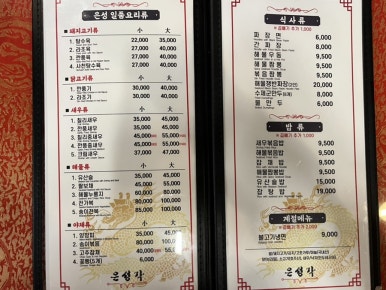 은성 일품요리류
■ 돼지고기류 小 大
1. 탕수육 22,000 35,000
2. 라조육 27,000 40,000
3. 깐풍육 27,000 40,000
4. 사천탕수육 27,000 40,000
■ 닭고기류 小 大
1. 깐풍기 30,000 40,000
2. 라조기 30,000 40,000
■ 새우류 小 大
1. 칠리새우 35,000 45,000
2. 깐풍새우 35,000 45,000
3. 칠리중새우 45,000 55,000
4. 깐풍중새우 45,000 55,000
5. 크림새우 37,000 47,000
■ 해물류 小 大
1. 유산슬 35,000 45,000
2. 팔보채 35,000 45,000
3. 해물누룽지 35,000 45,000
4. 전가복 60,000 80,000
5. 송이전복 80,000 100,000
■ 야채류 小 大
1. 양장피 35,000 45,000
2. 송이볶음 80,000 100,000
3. 고추잡채 40,000 55,000
4. 꽃빵(5개) 5,000
은성각
식사류
※ 곱빼기 추가 1,000
짜장면 6,000
간짜장 8,000
해물우동 9,500
해물짬뽕 9,500
볶음짬뽕 9,500
해물쟁반짜장 20,000
수제군만두 8,000
물만두 6,000
밥류
※ 곱빼기 추가 1,000
새우볶음밥 9,500
해물볶음밥 9,500
잡채밥 9,500
해물짬뽕밥 9,500
유산슬밥 15,000
잡탕밥 19,000
계절메뉴
※ 곱빼기 추가 2,000
불고기냉면 9,000
은성각